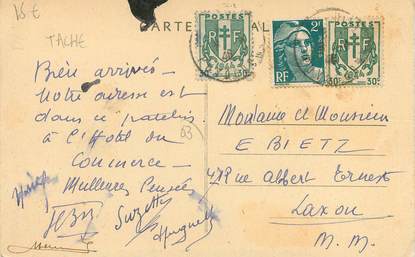 15 €
TACHE
CARTE POSTALE
POSTES
RF
30c 30c
2F
RF
POSTES
RF
30c 30c
Bien arrivés -
notre adresse est
dans ce patelin
à l'Hôtel du
Commerce -
Meilleures Pensées
Suzette
Huguette
Madame et Monsieur
E BIETZ
rue Albert
Laxou
M. M.